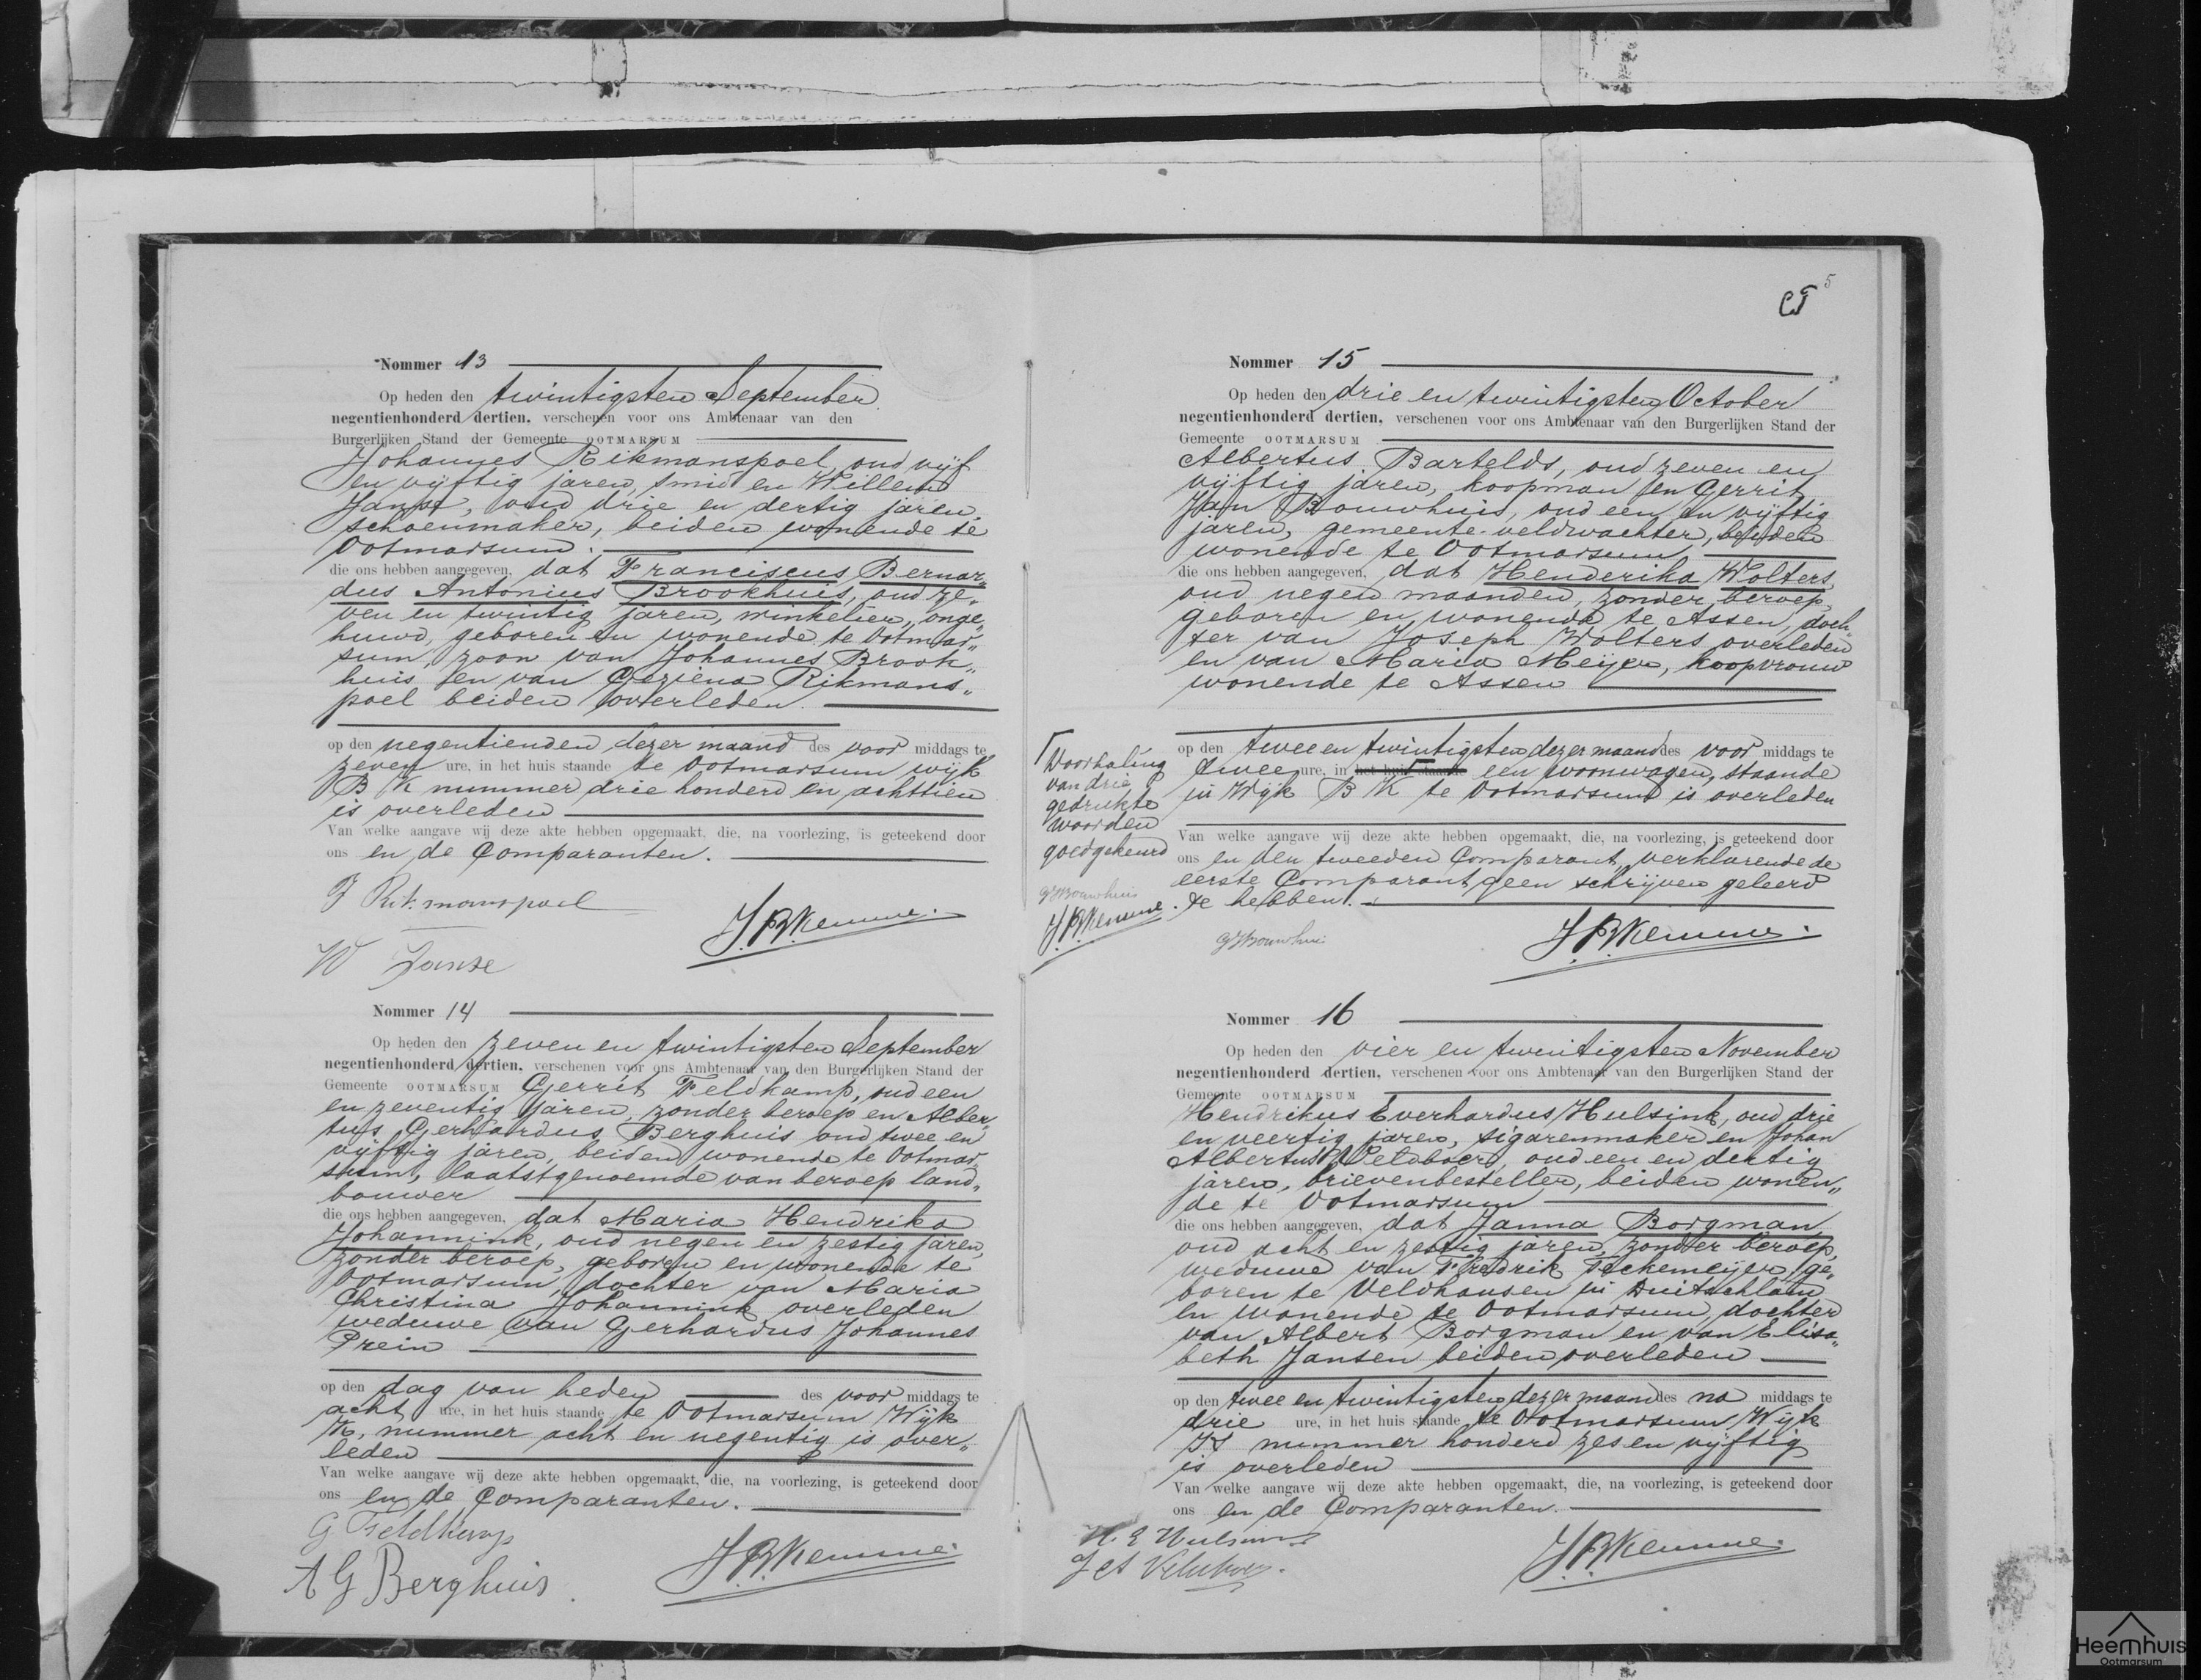 Nommer 13
Op heden den twintigsten September
negentienhonderd dertien, verschenen voor ons Ambtenaar van den
Burgerlijken Stand der Gemeente OOTMARSUM
Johannes Rikmanspoel, oud vijf
en vijftig jaren, smid en Willem
Janse, oud drie en dertig jaren,
schoenmaker, beiden wonende te
Ootmarsum.
die ons hebben aangegeven, dat Franciscus Bernar„
dus Antonius Brookhuis, oud ze„
ven en twintig jaren, winkelier, onge„
huwd, geboren en wonende te Ootmar„
sum, zoon van Johannes Brook„
huis en van Geziena Rikmans„
poel beiden overleden.
op den negentienden dezer maand des voor middags te
zeven ure, in het huis staande te Ootmarsum wijk
B K nummer drie honderd en achttien
is overleden
Van welke aangave wij deze akte hebben opgemaakt, die, na voorlezing, is geteekend door
ons en de Comparanten.
J Rikmanspoel
JBKemme.
W Janse
Nommer 14
Op heden den zeven en twintigsten September
negentienhonderd dertien, verschenen voor ons Ambtenaar van den Burgerlijken Stand der
Gemeente OOTMARSUM Gerrit Feldkamp, oud een
en zeventig jaren, zonder beroep en Alber„
tus Gerhardus Berghuis oud twee en
vijftig jaren, beiden wonende te Ootmar„
sum, laatstgenoemde van beroep land„
bouwer
die ons hebben aangegeven, dat Maria Hendrika
Johannink, oud negen en zestig jaren,
zonder beroep, geboren en wonende te
Ootmarsum, dochter van Maria
Christina Johannink overleden
weduwe van Gerhardus Johannes
Prein
op den dag van heden des voor middags te
acht ure, in het huis staande te Ootmarsum Wijk
K, nummer acht en negentig is over„
leden
Van welke aangave wij deze akte hebben opgemaakt, die, na voorlezing, is geteekend door
ons en de Comparanten.
G Feldkamp
JBKemme.
A G Berghuis
5
Nommer 15
Op heden den drie en twintigsten October
negentienhonderd dertien, verschenen voor ons Ambtenaar van den Burgerlijken Stand der
Gemeente OOTMARSUM
Albertus Bartelds, oud zeven en
vijftig jaren, koopman en Gerrit
Jan Bouwhuis, oud een en vijftig
jaren, gemeente-veldwachter, beiden
wonende te Ootmarsum
die ons hebben aangegeven, dat Henderika Wolters,
oud negen maanden, zonder beroep,
geboren en wonende te Assen, doch„
ter van Joseph Wolters overleden
en van Maria Meijer, koopvrouw
wonende te Assen
op den twee en twintigsten dezer maand des voor middags te
twee ure, in het huis staande een woonwagen, staande
in Wijk B K te Ootmarsum is overleden
Van welke aangave wij deze akte hebben opgemaakt, die, na voorlezing, is geteekend door
ons en den tweeden Comparant, verklarende de
eerste Comparant geen schrijven geleerd
te hebben.
Doorhaling
van drie
gedrukte
woorden
goedgekeurd
GJBouwhuis
JBKemme.
GJBouwhuis
JBKemme.
Nommer 16
Op heden den vier en twintigsten November
negentienhonderd dertien, verschenen voor ons Ambtenaar van den Burgerlijken Stand der
Gemeente OOTMARSUM
Hendrikus Everhardus Hulsink, oud drie
en veertig jaren, sigarenmaker en Johan
Albertus Veldboer, oud een en dertig
jaren, brievenbesteller, beiden wonen„
de te Ootmarsum
die ons hebben aangegeven, dat Janna Borgman
oud acht en zestig jaren, zonder beroep,
weduwe van Fredrik ge„
boren te Veldhausen in Duitschland
en wonende te Ootmarsum, dochter
van Albert Borgman en van Elisa„
beth Jansen beiden overleden
op den twee en twintigsten dezer maand des na middags te
drie ure, in het huis staande te Ootmarsum Wijk
nummer honderd zes en vijftig
is overleden
Van welke aangave wij deze akte hebben opgemaakt, die, na voorlezing, is geteekend door
ons en de Comparanten.
H. E Hulsink
JBKemme.
J A Veldboer.
Heemhuis
Ootmarsum